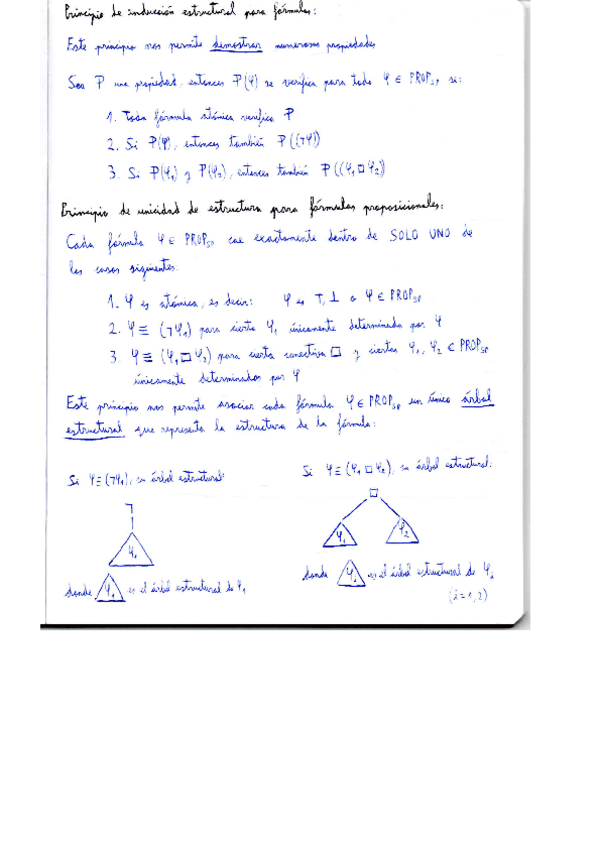 Principio de inducción estructural para fórmulas:
Este principio nos permite demostrar numerosas propiedades
Sea P una propiedad, entonces P(φ) se verifica para todo φ ∈ PROP_SP si:
1. Toda fórmula atómica verifica P
2. Si P(φ), entonces también P((¬φ))
3. Si P(φ₁) y P(φ₂), entonces también P((φ₁ □ φ₂))
Principio de unicidad de estructura para fórmulas proposicionales:
Cada fórmula φ ∈ PROP_SP cae exactamente dentro de SOLO UNO de
los casos siguientes:
1. φ es atómica, es decir: φ es ⊤, ⊥ o φ ∈ PROP_SP
2. φ ≡ (¬φ₁) para cierta φ₁ únicamente determinada por φ
3. φ ≡ (φ₁ □ φ₂) para cierta conectiva □ y ciertas φ₁, φ₂ ∈ PROP_SP
únicamente determinados por φ
Este principio nos permite asociar cada fórmula φ ∈ PROP_SP un único árbol
estructural que representa la estructura de la fórmula:
Si φ ≡ (¬φ₁), su árbol estructural:
¬
φ₁
donde φ₁ es el árbol estructural de φ₁
Si φ ≡ (φ₁ □ φ₂), su árbol estructural:
□
φ₁ φ₂
donde φᵢ es el árbol estructural de φᵢ
(i = 1, 2)